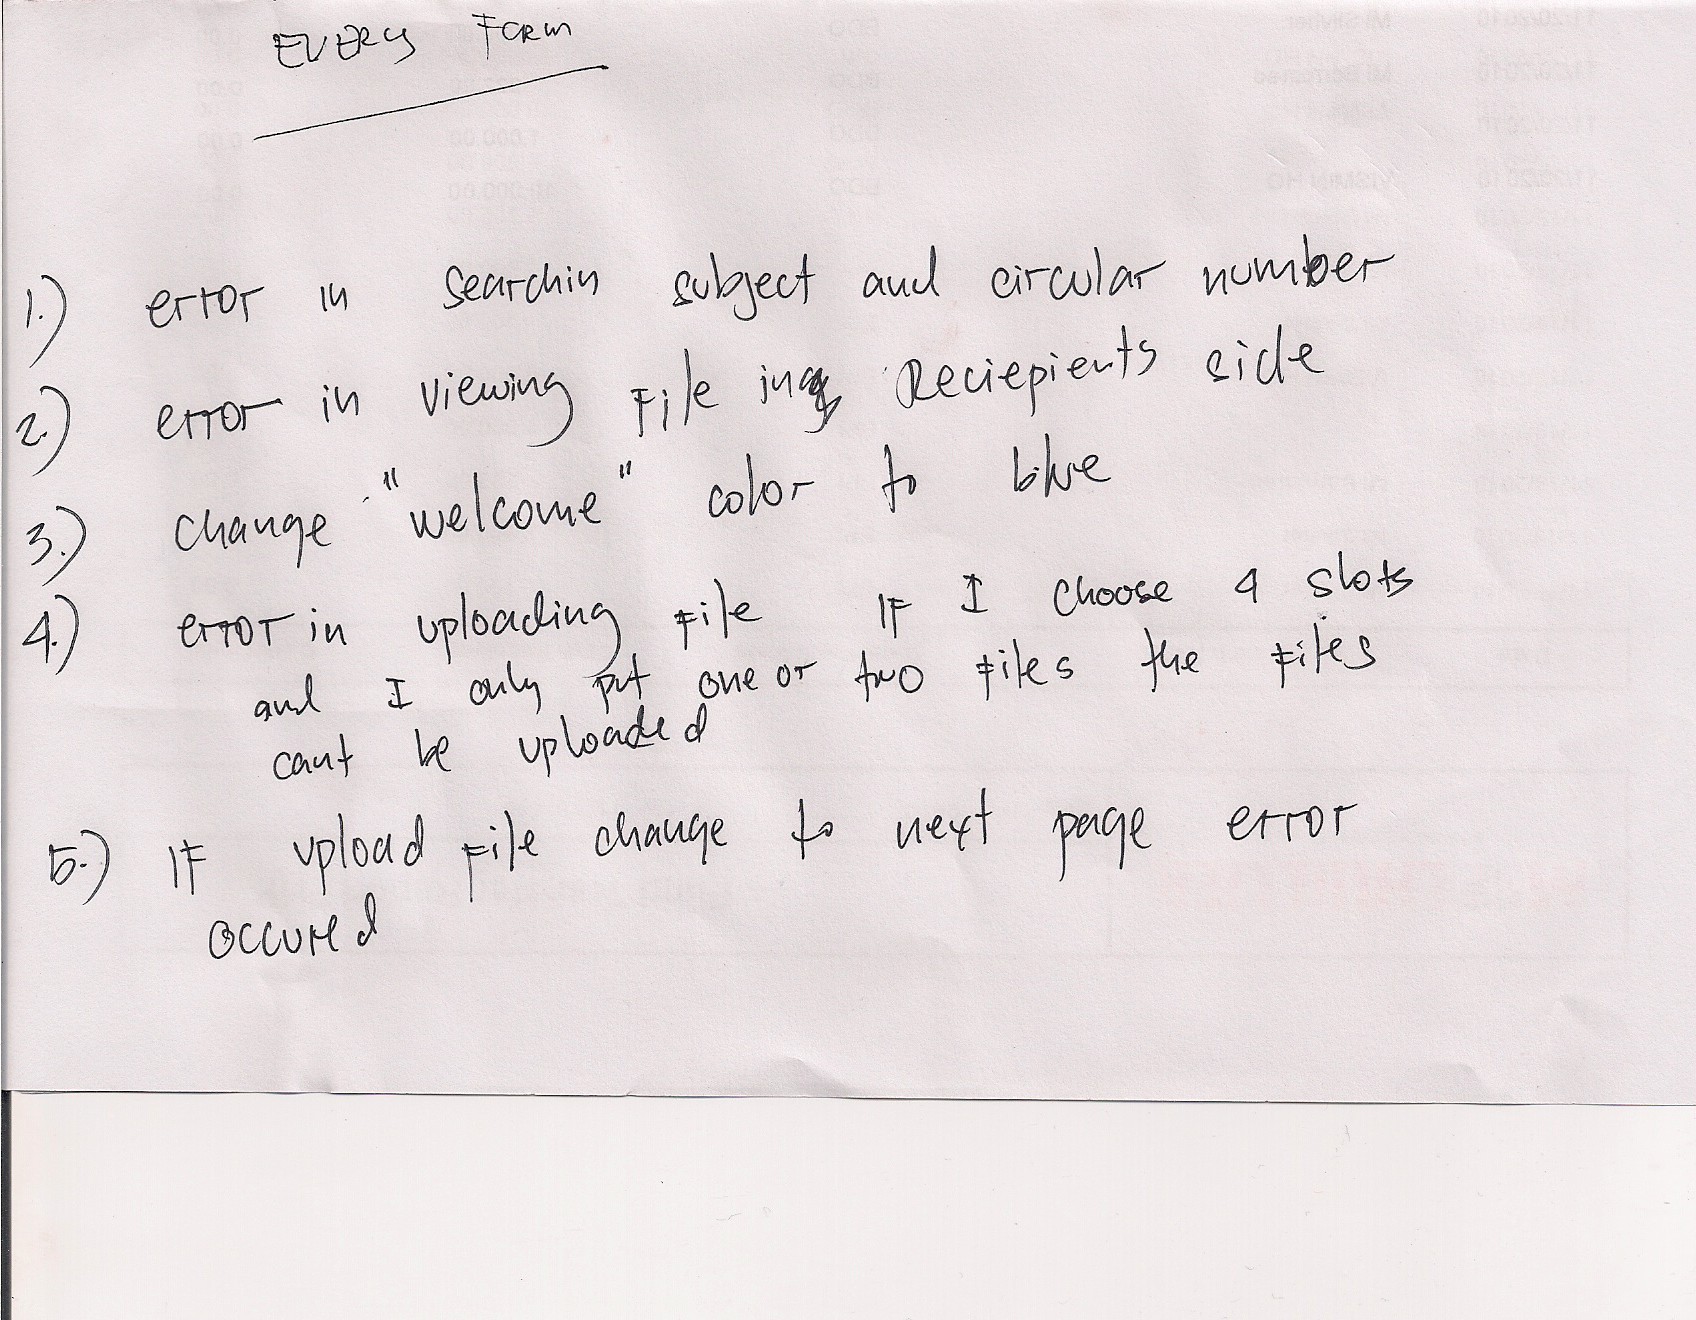 EVERY FORM
1.) error in searchin subject and circular number
2.) error in viewing File in Reciepients side
3.) change "welcome" color to blue
4.) error in uploading File IF I choose 4 slots
and I only put one or two Files the Files
cant be uploaded
5.) IF upload File change to next page error
occured